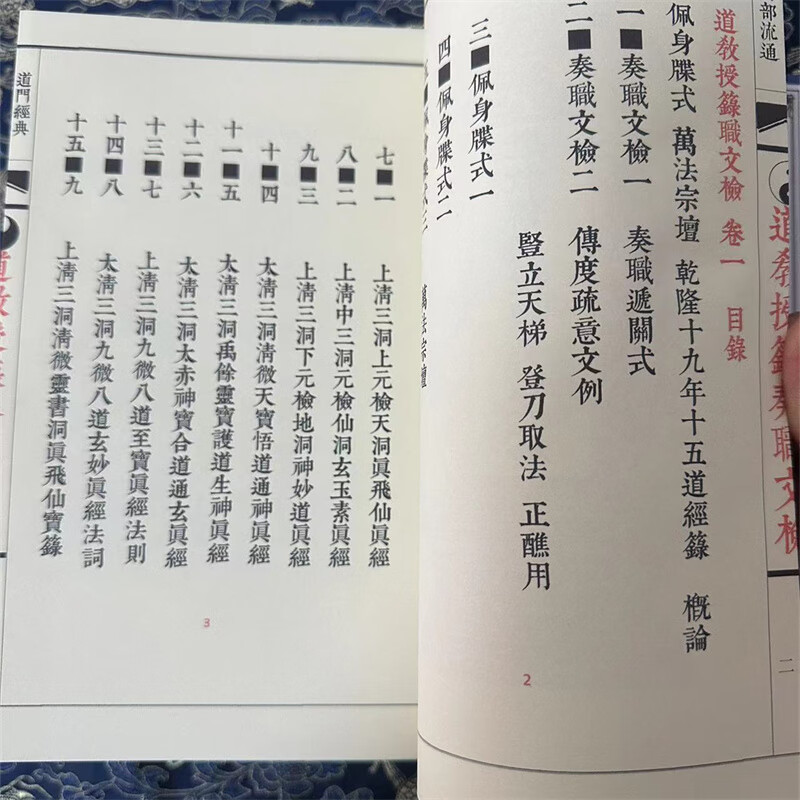 部流通
道教授籙奏職文檢
二
道教授籙職文檢 卷一 目錄
佩身牒式 萬法宗壇 乾隆十九年十五道經籙 概論
一■奏職文檢一 奏職遞關式
二■奏職文檢二 傳度疏意文例
豎立天梯 登刀取法 正醮用
三■佩身牒式一
四■佩身牒式二
萬法宗壇
2
七■一 上清三洞上元檢天洞眞飛仙眞經
八■二 上清中三洞元檢仙洞玄玉素眞經
九■三 上清三洞下元檢地洞神妙道眞經
十■四 太清三洞清微天寶悟道通神眞經
十一■五 太清三洞禹餘靈寶護道生神眞經
十二■六 太清三洞太赤神寶合道通玄眞經
十三■七 上清三洞九微八道至寶眞經法則
十四■八 太清三洞九微八道玄妙眞經法詞
十五■九 上清三洞清微靈書洞眞飛仙寶籙
3
道門經典
道教